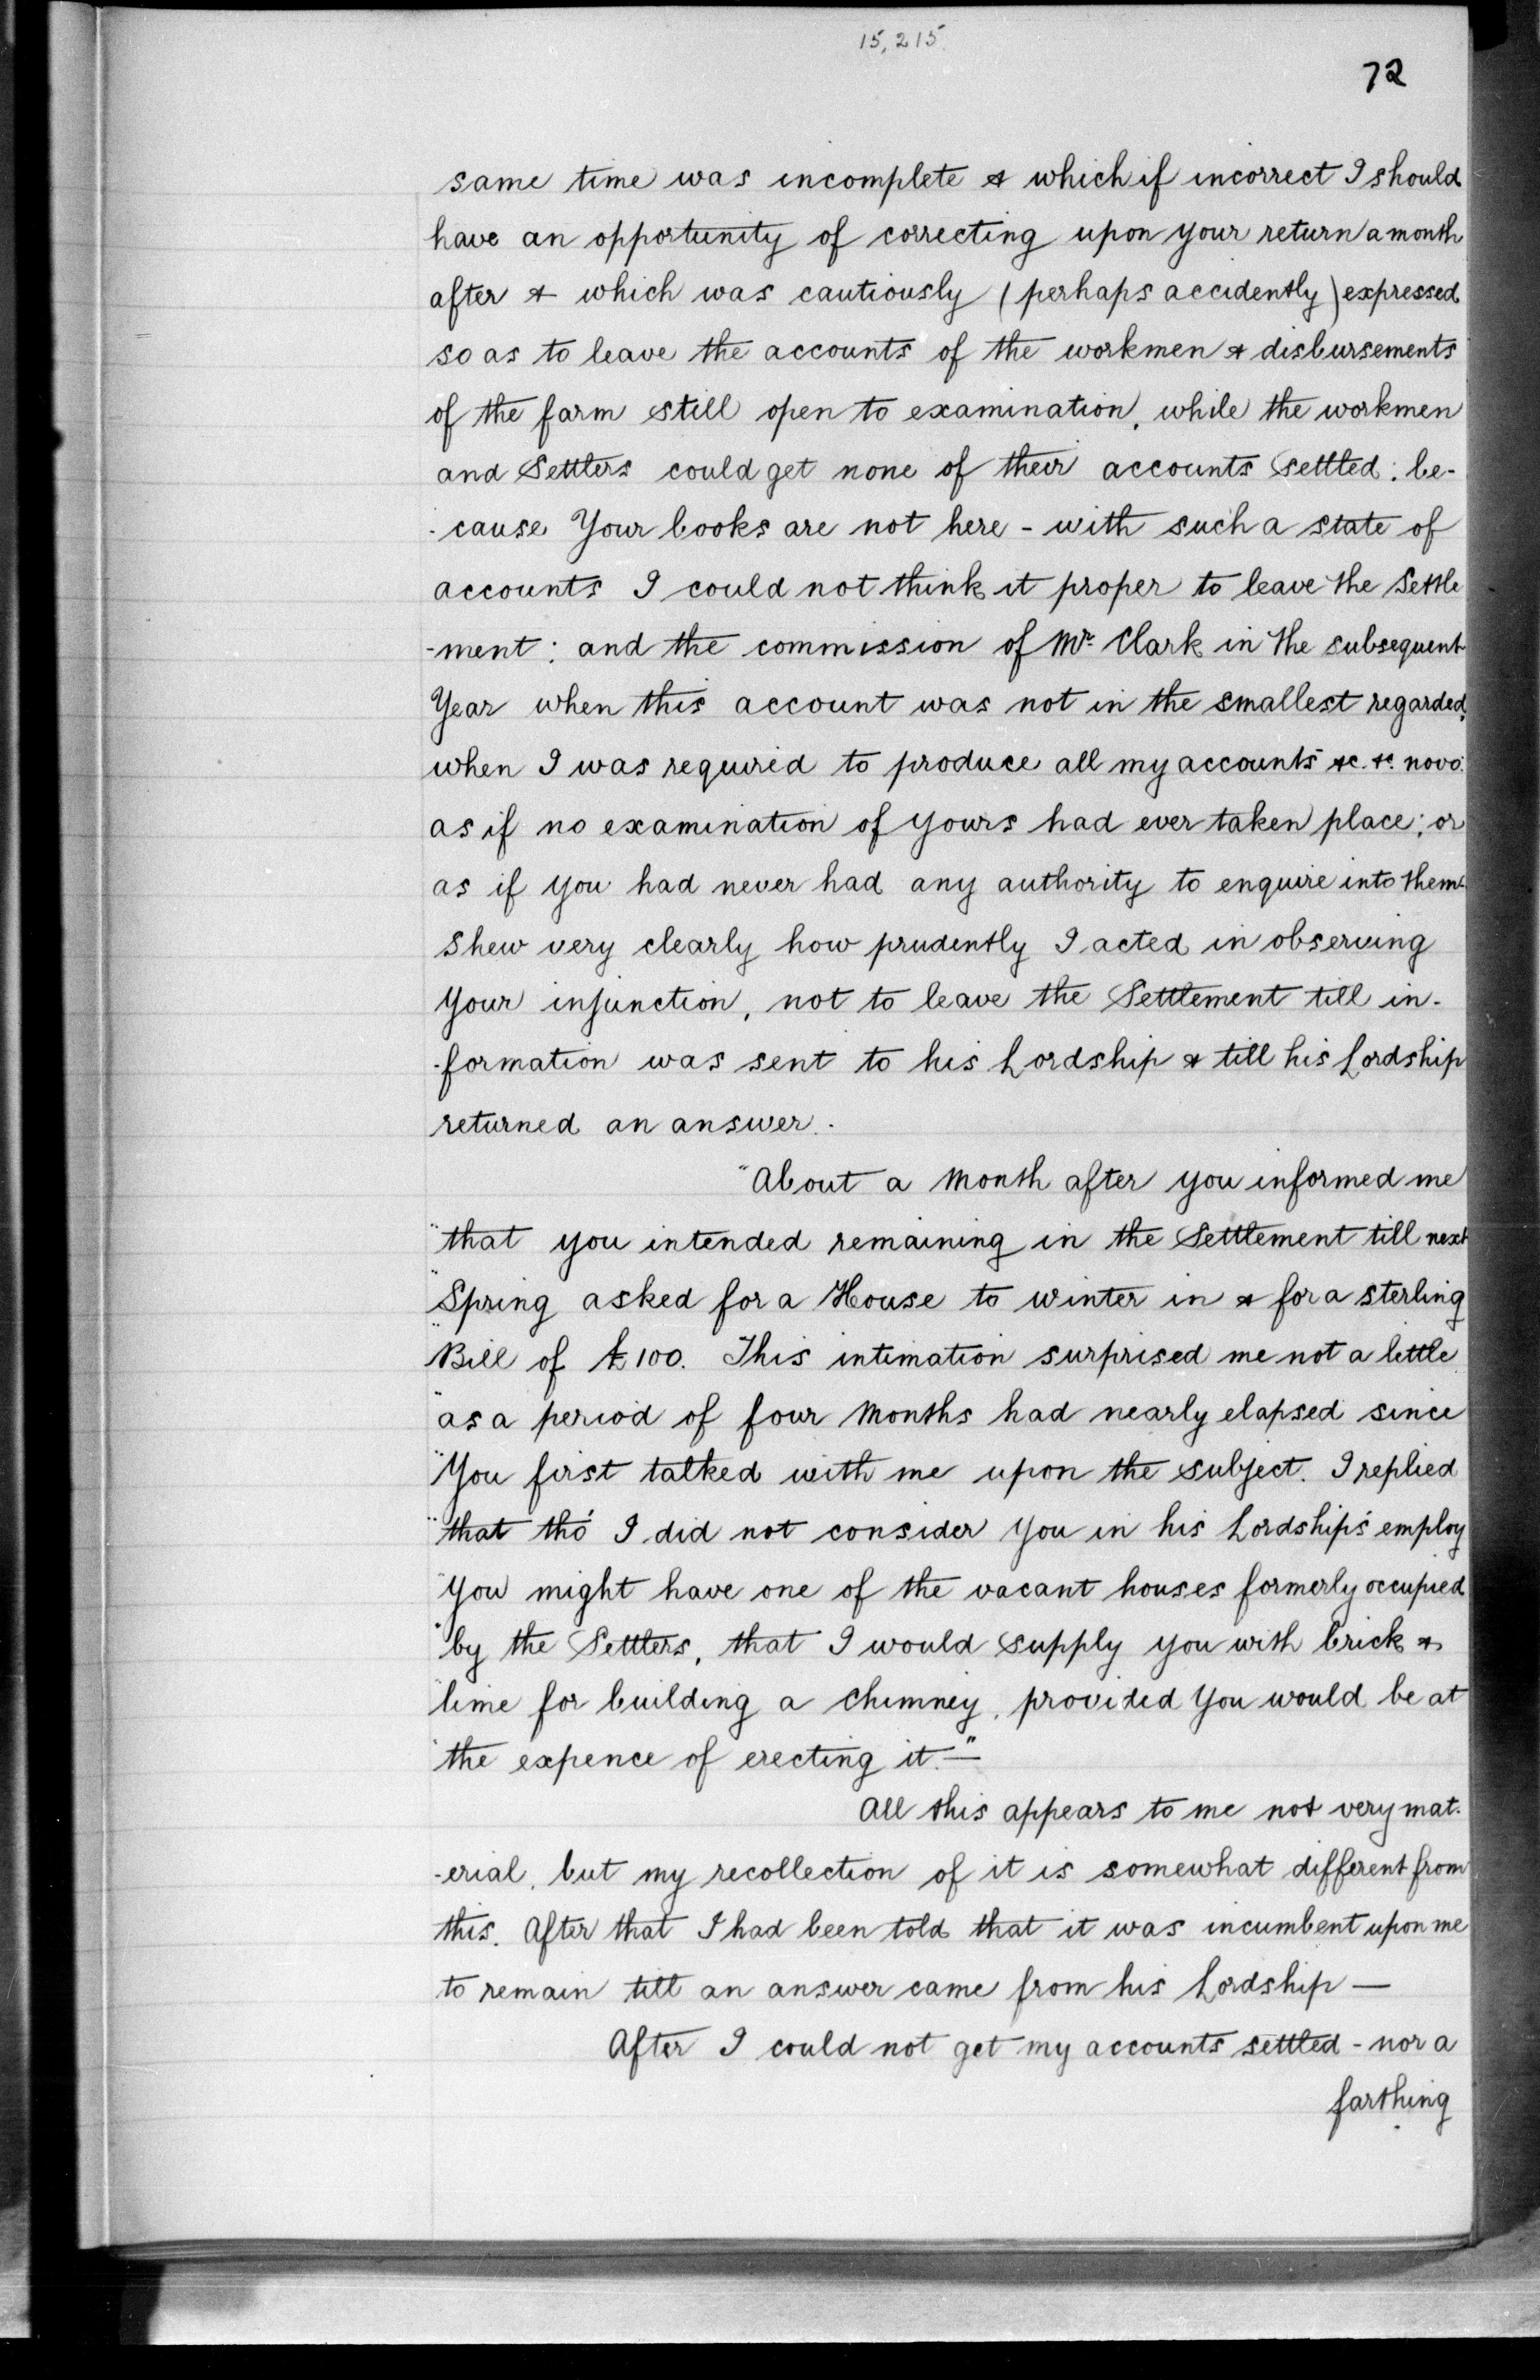 15,215.
72
same time was incomplete & which if incorrect I should
have an opportunity of correcting upon your return a month
after & which was cautiously (perhaps accidently) expressed
so as to leave the accounts of the workmen & disbursements
of the farm still open to examination, while the workmen
and Settlers could get none of their accounts settled: be-
-cause Your books are not here - with such a state of
accounts I could not think it proper to leave the Settle
-ment: and the commission of Mr. Clark in the subsequent
Year when this account was not in the smallest regarded,
when I was required to produce all my accounts &c. &c. novo.
as if no examination of yours had ever taken place; or
as if you had never had any authority to enquire into them
shew very clearly how prudently I acted in observing
Your injunction, not to leave the Settlement till in-
-formation was sent to his Lordship & till his Lordship
returned an answer.
"About a Month after you informed me
"that you intended remaining in the Settlement till next
"Spring asked for a House to winter in & for a sterling
"Bill of £100. This intimation surprised me not a little
"as a period of four Months had nearly elapsed since
"You first talked with me upon the subject. I replied
"that tho' I did not consider You in his Lordship's employ
"You might have one of the vacant houses formerly occupied
"by the Settlers, that I would supply you with brick &
"lime for building a Chimney, provided You would be at
"the expence of erecting it.—"
All this appears to me not very mat-
-erial, but my recollection of it is somewhat different from
this. After that I had been told that it was incumbent upon me
to remain till an answer came from his Lordship —
After I could not get my accounts settled - nor a
farthing